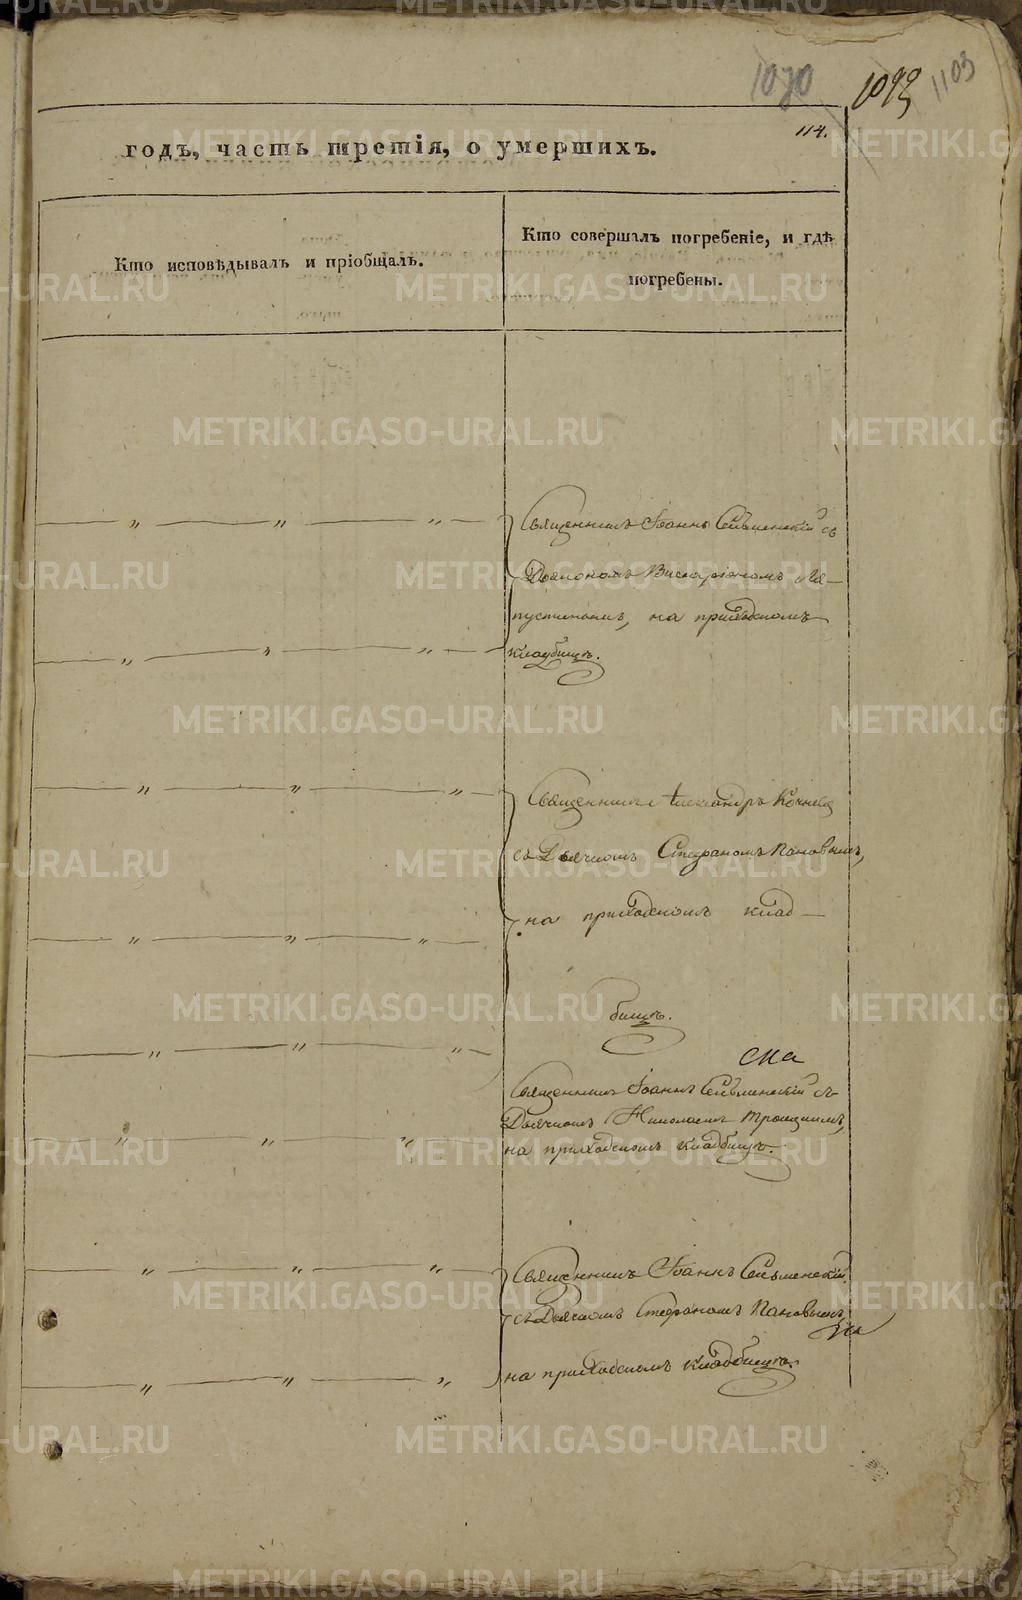 1070 1093 1103
114.
годъ, часть третія, о умершихъ.
Кто исповѣдывалъ и пріобщалъ.
Кто совершалъ погребеніе, и гдѣ
погребены.
Священникъ Іоаннъ Сельменскій съ
Діакономъ Висаріономъ Ла-
пустинымъ, на приходскомъ
кладбищѣ.
Священникъ Александръ Кочнев
съ Дьячкомъ Стефаномъ Пановымъ,
на приходскомъ клад-
бищѣ.
Священникъ Іоаннъ Сельменскій съ
Дьячкомъ Николаемъ Троицкимъ,
на приходскомъ кладбищѣ.
Священникъ Іоаннъ Сельменскій
съ Дьячкомъ Стефаномъ Пановымъ
на приходскомъ кладбищѣ.
METRIKI.GASO-URAL.RU